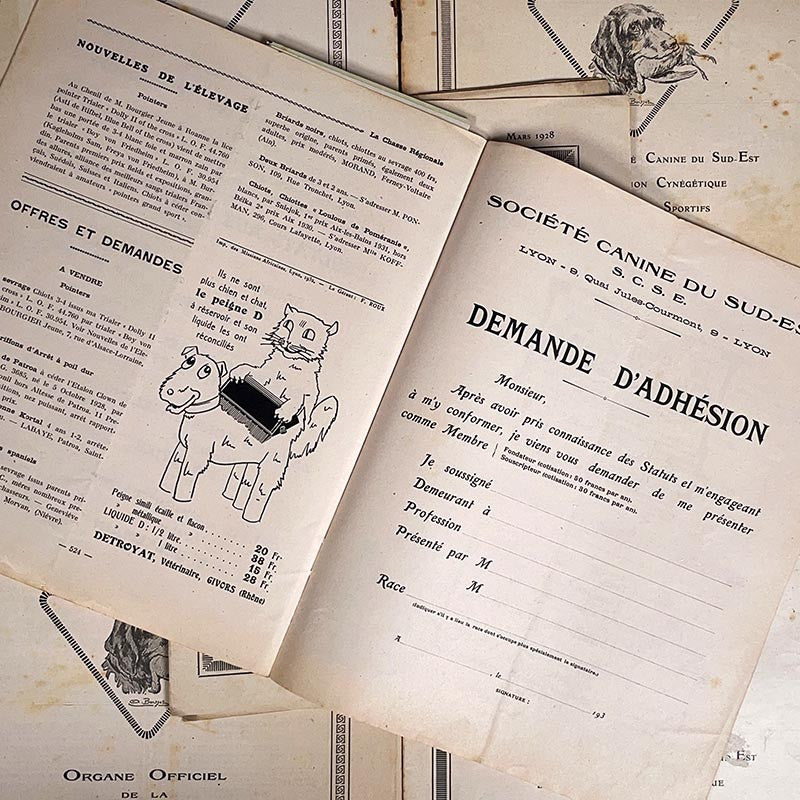 NOUVELLES DE L'ÉLEVAGE
Pointers
Au Chenil de M. Bourgier Jeune à Roanne la lice
pointer Trialer « Dolly II of the cross » L. O. F. 44.760
(Astl de Biftel, Blue Bell of the cross) vient de mettre
bas une portée de 3-4 blanc foie et marron sain par
le Trialer « Boy von Friedheim » L. O. F. 30.954
(Kagleholms Sam, Freya von Friedheim), à M. Bur-
din. Parents premiers prix fields et expositions, gran-
des allures, alliance des meilleurs sangs trialers Fran-
çais, Suédois, Suisses et Italiens. Chiots à céder con-
viendraient à amateurs « pointers grand sport ».
OFFRES ET DEMANDES
A VENDRE
Pointers
sevrage Chiots 3-4 issus ma Trialer « Dolly II
cross » L. O. F. 44.760 par trialer « Boy von
im » L. O. F. 30.954. Voir Nouvelles de l'Ele-
BOURGIER Jeune, 7, rue d'Alsace-Lorraine,
riffons d'Arrêt à poil dur
de Patroa à céder l'Etalon Clown de
G. 3685, né le 5 Octobre 1928, par
onil hors Altesse de Patroa. 11 Pre-
sitions, nez puissant, arrêt, rapport,
prix.
nne Kortal 4 ans 1-2, arrête,
— LABAYE, Patroa, Saint-
spaniels
sevrage issus parents pri-
C., mères nombreux pre-
chasseurs. — Geneviève
Morvan, (Nièvre).
— 524 —
La Chasse Régionale
Briards noirs, chiots, chiottes au sevrage 400 frs,
superbe origine, parents primés, également deux
adultes, prix modérés, MORAND, Ferney-Voltaire
(Ain).
Deux Briards de 3 et 2 ans. — S'adresser M. PON-
SON, 109, Rue Tronchet, Lyon.
Chiots, Chiottes « Loulous de Poméranie »,
blancs, par Sniejok, 1er prix Aix-les-Bains 1931, hors
Bélka 2e prix Aix 1930. — S'adresser Mlle KOFF-
MAN, 296, Cours Lafayette, Lyon.
Imp. des Missions Africaines, Lyon, 1932. — Le Gérant : F. ROUX
Ils ne sont
plus chien et chat,
le peigne D
à réservoir et son
liquide les ont
réconciliés
Peigne simili écaille et flacon . . . . . 20 Fr.
» métallique » . . . . . 38 Fr.
LIQUIDE D : 1/2 litre . . . . . 15 Fr.
» » 1 litre . . . . . 28 Fr.
DETROYAT, Vétérinaire, GIVORS (Rhône)
MARS 1928
É CANINE DU SUD-EST
ION CYNÉGÉTIQUE
SPORTIFS
SOCIÉTÉ CANINE DU SUD-ES
S. C. S. E.
LYON - 9, Quai Jules-Courmont, 9 - LYON
DEMANDE D'ADHÉSION
Monsieur,
Après avoir pris connaissance des Statuts et m'engageant
à m'y conformer, je viens vous demander de me présenter
comme Membre
Fondateur (cotisation : 50 francs par an).
Souscripteur (cotisation : 30 francs par an).
Je soussigné
Demeurant à
Profession
Présenté par M
M
Race
(Indiquer s'il y a lieu la race dont s'occupe plus spécialement le signataire.)
A , le 193
SIGNATURE :
ORGANE OFFICIEL
DE LA
EST